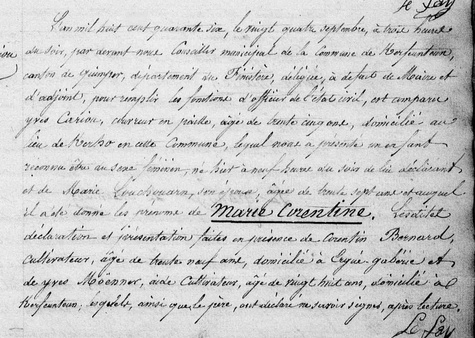 Le Fay
L'an mil huit cent quarante six, le vingt quatre septembre, à trois heures
du soir, par devant nous Conseiller municipal de la commune de Kerfeunteun,
canton de Quimper, département du Finistère, délégué, à défaut de Maire et
d'adjoint, pour remplir les fonctions d'officier de l'état civil, est comparu
Yves Cariou, couvreur en paille, âgé de trente cinq ans, domicilié au
lieu de en cette Commune, lequel nous a présenté un enfant
reconnu être du sexe féminin, né hier à neuf heures du soir de lui déclarant
et de Marie son épouse, âgée de trente sept ans et auquel
il a été donné les prénoms de Marie Corentine. Lesdites
déclaration et présentation faites en présence de Corentin Bernard,
Cultivateur, âgé de trente neuf ans, domicilié à Ergué-gaberic et
de Yves Moënner, aide Cultivateur, âgé de vingt huit ans, domicilié à
Kerfeunteun, lesquels, ainsi que le père, ont déclaré ne savoir signer, après lecture.
Le Fay